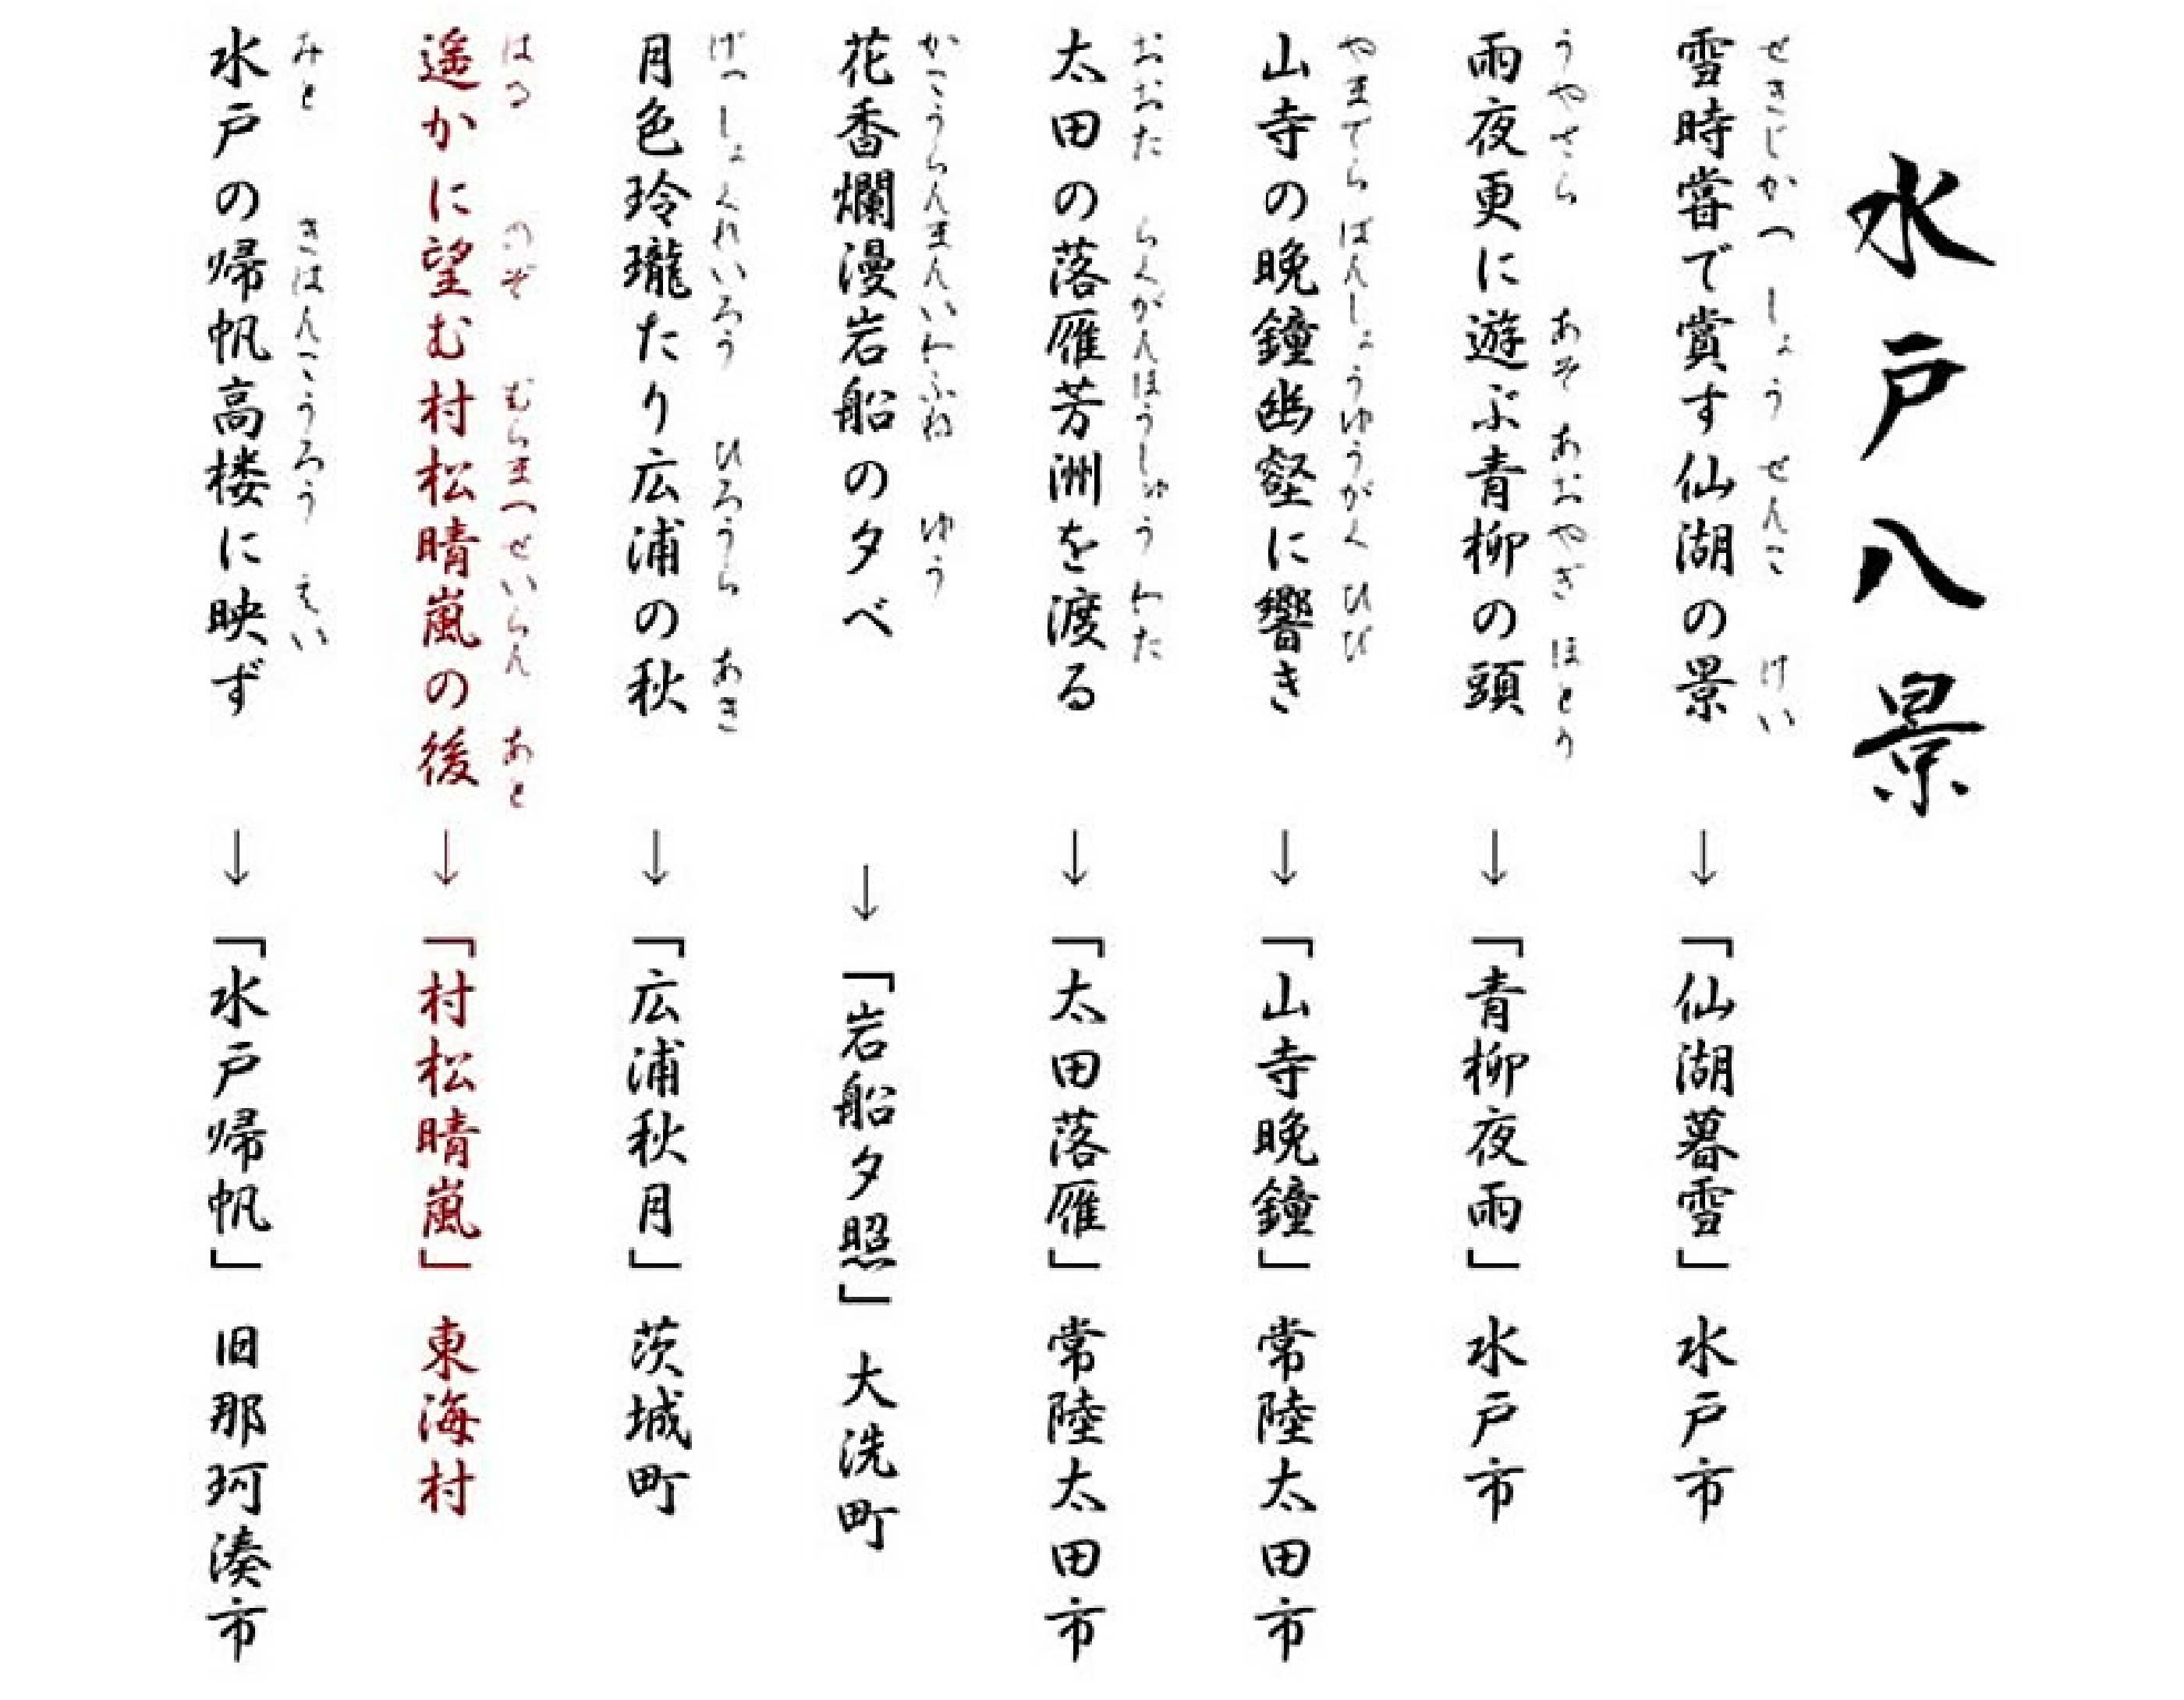 水戸八景
せきじかつ しょう せんこ けい
雪時嘗で賞す仙湖の景 → 「仙湖暮雪」 水戸市
うやさら あそ あおやぎ ほとり
雨夜更に遊ぶ青柳の頭 → 「青柳夜雨」 水戸市
やまでら ばんしょうゆうがく ひび
山寺の晩鐘幽壑に響き → 「山寺晩鐘」 常陸太田市
おおた らくがんほうしゅう わた
太田の落雁芳洲を渡る → 「太田落雁」 常陸太田市
かこうらんまんいわふね ゆう
花香爛漫岩船の夕べ → 「岩船夕照」 大洗町
げっしょくれいろう ひろうら あき
月色玲瓏たり広浦の秋 → 「広浦秋月」 茨城町
はる のぞ むらまつせいらん あと
遥かに望む村松晴嵐の後 → 「村松晴嵐」 東海村
みと きはんこうろう えい
水戸の帰帆高楼に映ず → 「水戸帰帆」 旧那珂湊市